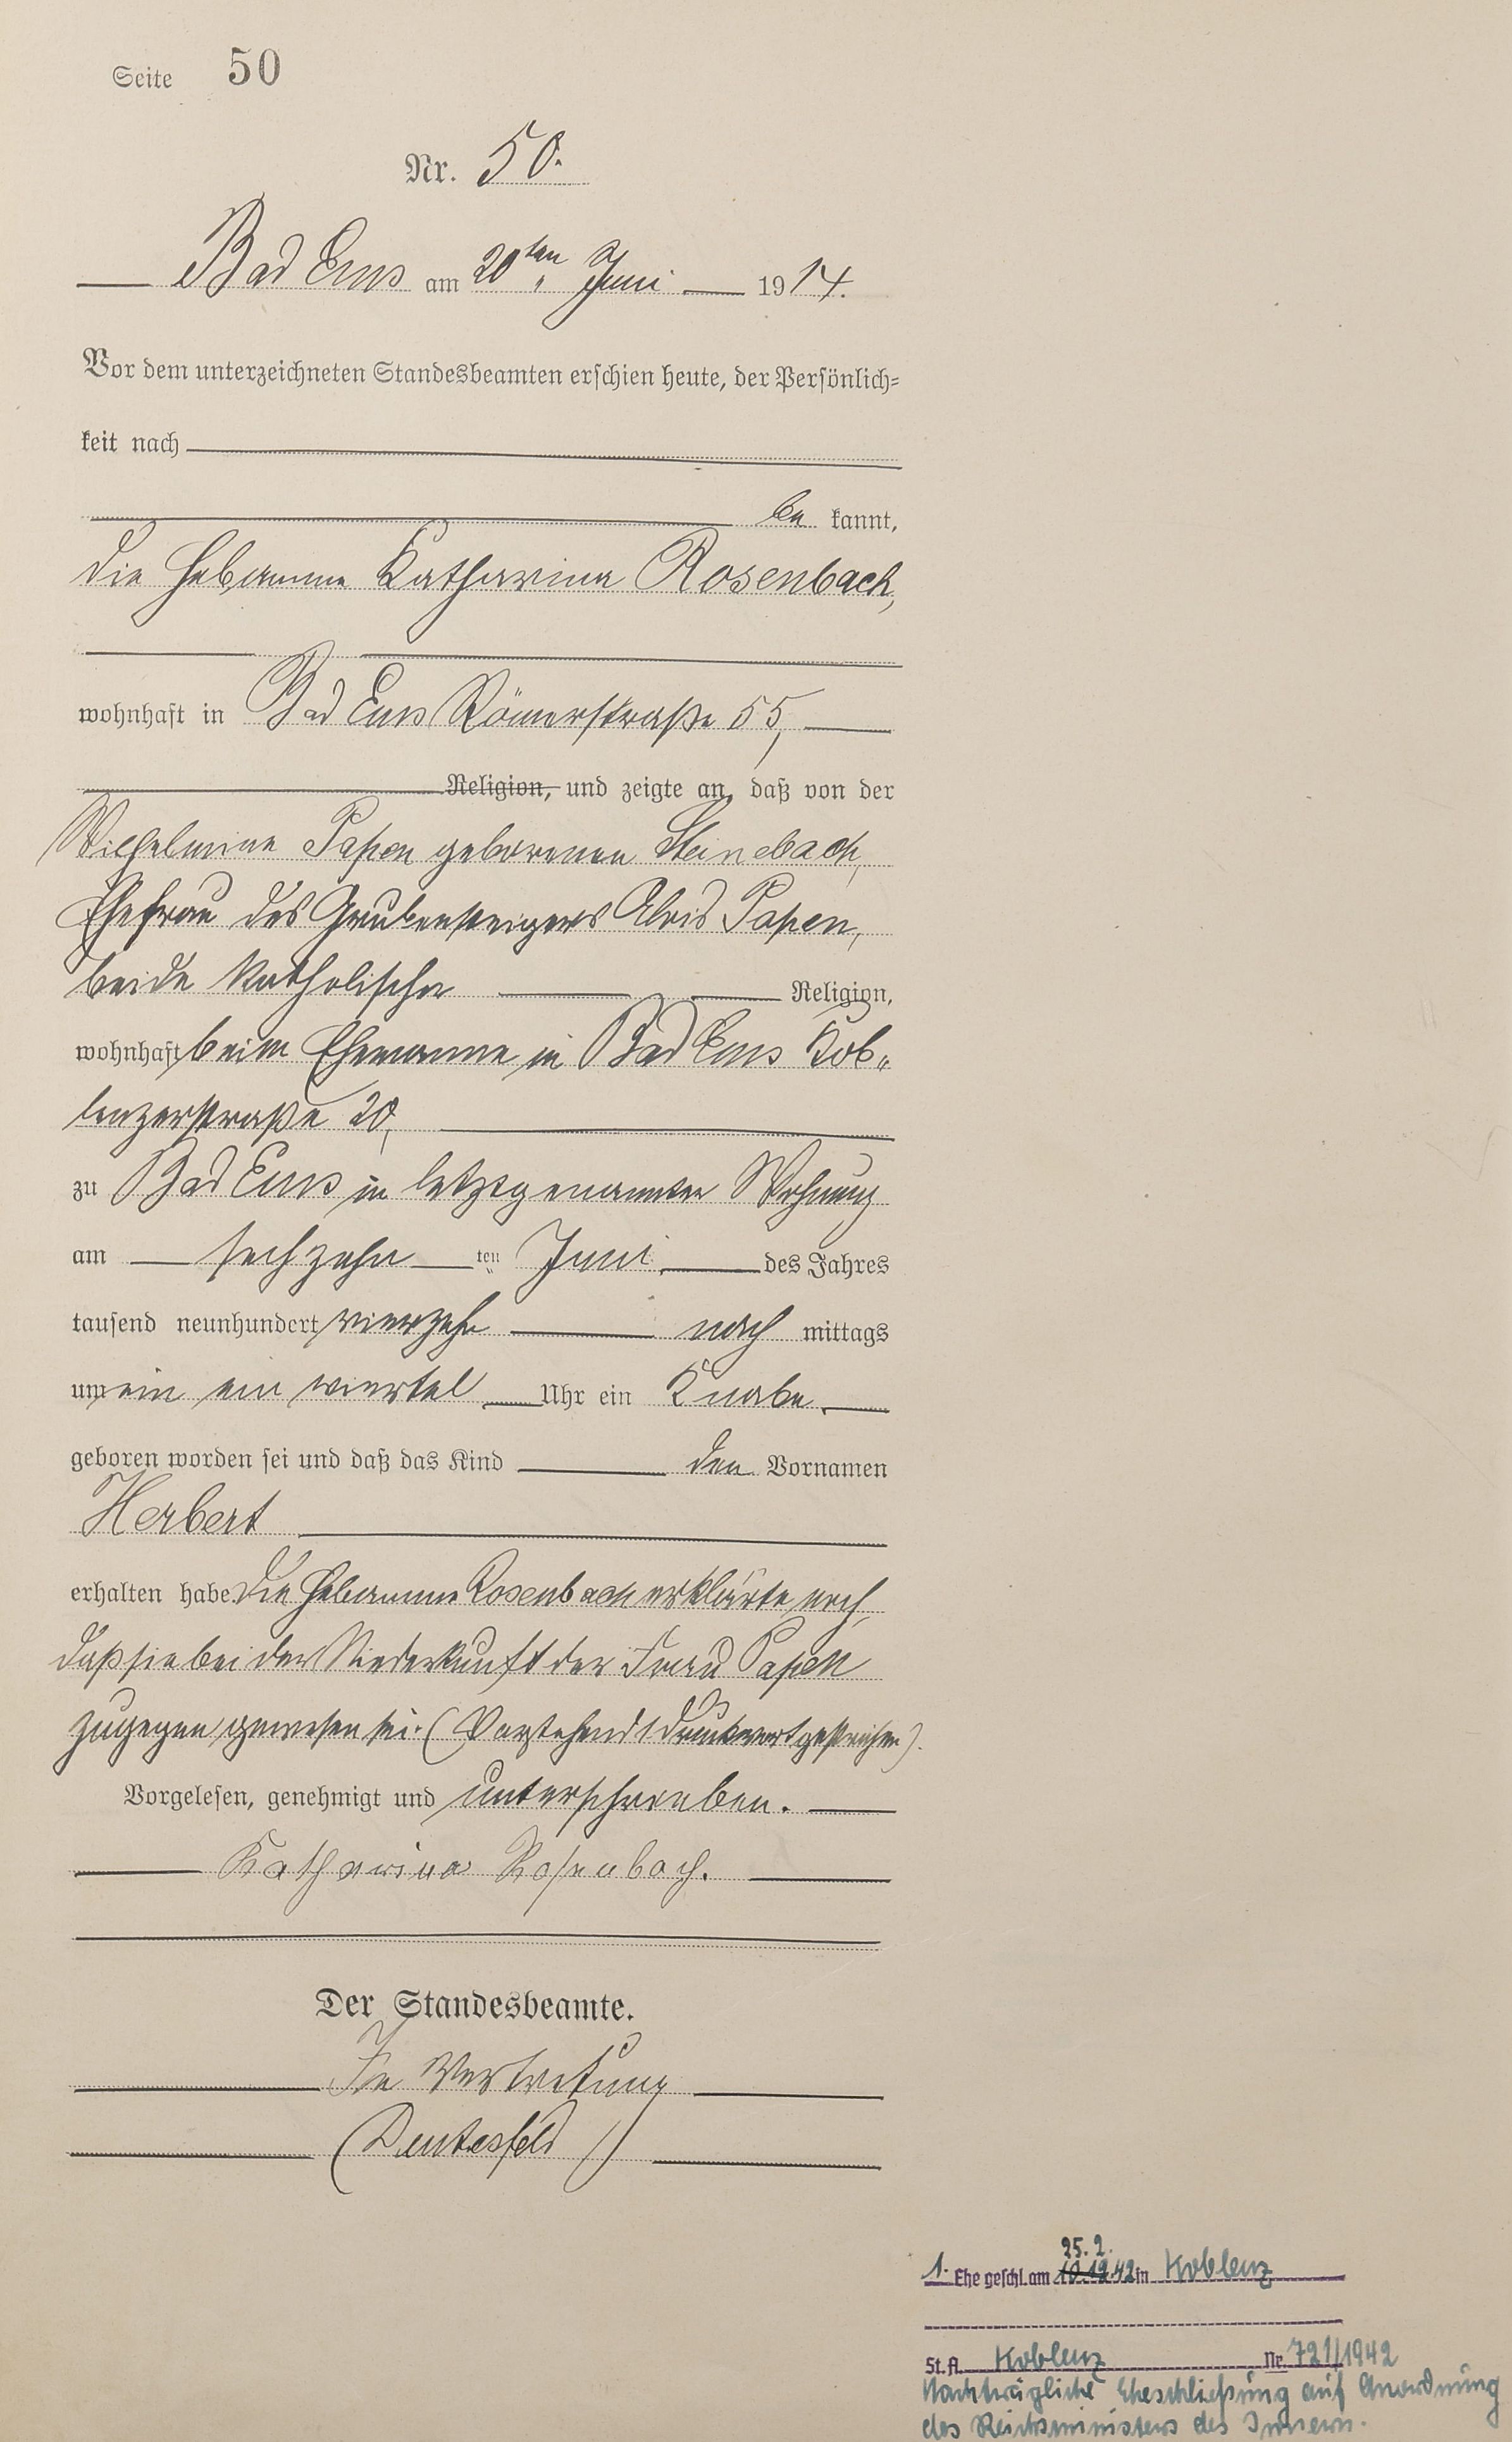 Seite 50
Nr. 50.
Bad Ems am 20ten Juni 1914.
Vor dem unterzeichneten Standesbeamten erschien heute, der Persönlich=
keit nach
be kannt,
die Hebamme Katharina Rosenbach,
wohnhaft in Bad Ems Römerstraße 55,
Religion, und zeigte an, daß von der
Wilhelmine Papen geborenen Steinebach,
Ehefrau des Grubensteigers Alois Papen,
beide katholischer Religion,
wohnhaft beim Ehemanne in Bad Ems Kob„
lenzerstraße 20,
zu Bad Ems in letztgenannter Wohnung
am sechzehn ten Juni des Jahres
tausend neunhundert vierzehn nach mittags
um ein ein viertel Uhr ein Knabe
geboren worden sei und daß das Kind den Vornamen
Herbert
erhalten habe. Die Hebamme Rosenbach erklärte noch,
daß sie bei der Niederkunft der Frau Papen
zugegen gewesen sei. (Vorstehend 1 Druckwort gestrichen).
Vorgelesen, genehmigt und unterschrieben.
Katharina Rosenbach.
Der Standesbeamte.
In Vertretung
(Dentesfeld)
25.2.
1. Ehe geschl. am 10.12.42 in Koblenz
St.A. Koblenz Nr. 721/1942
Nachträgliche Eheschließung auf Anordnung
des Reichsministers des Innern.